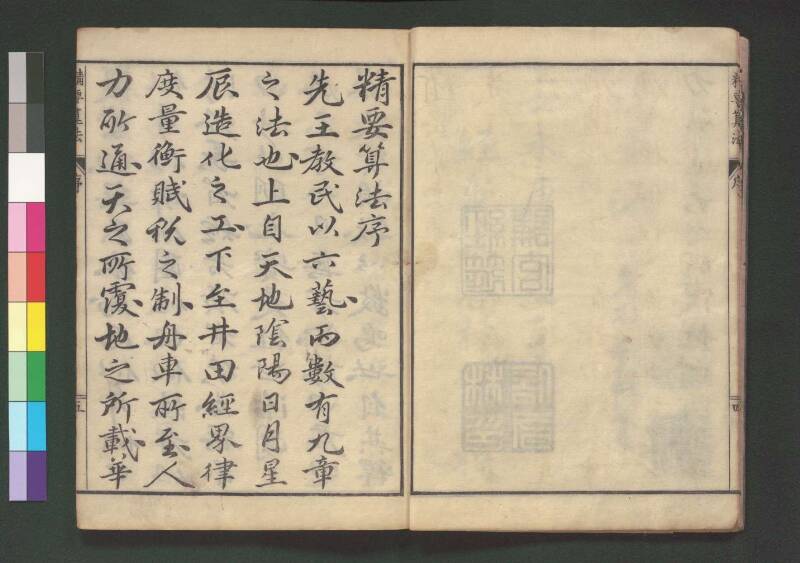 精要算法序
先王教民以六藝而數有九章
之法也上自天地陰陽日月星
辰造化之工下至井田經界律
度量衡賦税之制舟車所至人
力所通天之所覆地之所載華
精要算法
序
五
精要算法
序
四